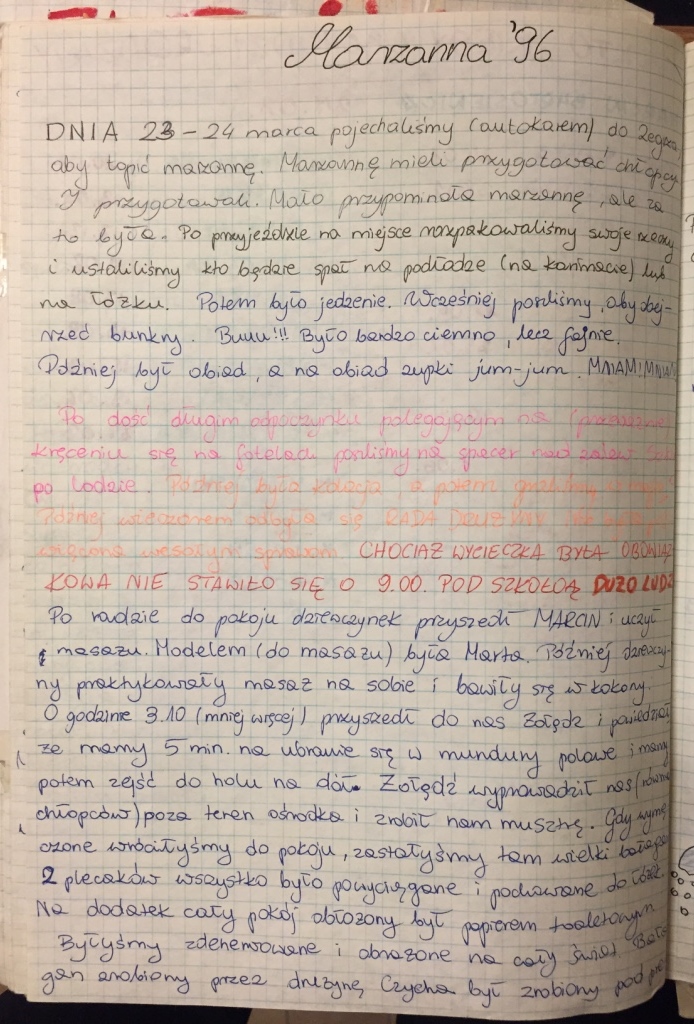 Marzanna '96
DNIA 23-24 marca pojechaliśmy (autokarem) do Zegrza,
aby topić marzannę. Marzannę mieli przygotować chłopcy
I przygotowali. Mało przypominała marzannę, ale za
to była. Po przyjeździe na miejsce rozpakowaliśmy swoje rzeczy
i ustaliliśmy kto będzie spał na podłodze (na karimacie) lub
na łóżku. Potem było jedzenie. Wcześniej poszliśmy, aby obej-
rzeć bunkry. Buuu!!! Było bardzo ciemno, lecz fajnie.
Później był obiad, a na obiad zupki jum-jum. MNIAM! MNIAM!
Po dość długim odpoczynku polegającym na
kręceniu się na fotelach poszliśmy na spacer nad zalew
po lodzie. Później była kolacja, a potem
Później wieczorem odbyła się RADA DRUŻYNY
wesołym sprawom. CHOCIAŻ WYCIECZKA BYŁA OBOWIĄZ
KOWA NIE STAWIŁO SIĘ O 9.00. POD SZKOŁĄ DUŻO LUDZ
Po radzie do pokoju dziewczynek przyszedł MARCIN i uczył
masażu. Modelem (do masażu) była Marta. Później dziewczy-
ny praktykowały masaż na sobie i bawiły się w kokony.
O godzinie 3.10 (mniej więcej) przyszedł do nas Żołędź i powiedział
że mamy 5 min. na ubranie się w mundury polowe i mamy
potem zejść do holu na dół. Żołędź wyprowadził nas (również
chłopców) poza teren ośrodka i zrobił nam musztrę. Gdy wymę
czone wróciłyśmy do pokoju, zastałyśmy tam wielki bałagan
2 plecaków wszystko było powyciągane i pochowane do łóżek.
Na dodatek cały pokój obłożony był papierem toaletowym.
Byłyśmy zdenerwowane i obrażone na cały świat. Bała
gan zrobiony przez drużynę Czycha był zrobiony pod